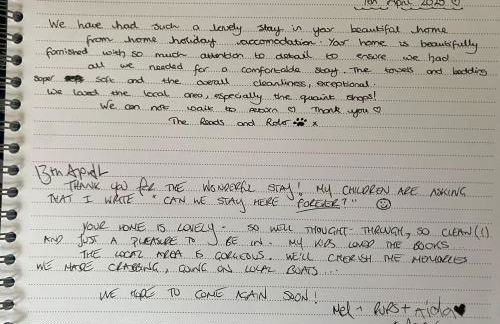 April 2025 ♡
We have had such a lovely stay in your beautiful home
from home holiday accomodation. Your home is beautifully
furnished with so much attention to detail to ensure we had
all we needed for a comfortable stay. The towels and bedding
super soft and the overall cleanliness, exceptional.
We loved the local area, especially the quaint shops!
We can not wait to return ♡ Thank you ♡
The Reads and Rolo 🐾 x
13th April
THANK YOU for THE WONDERFUL STAY! MY CHILDREN ARE ASKING
THAT I WRITE "CAN WE STAY HERE FOREVER?" ☺
YOUR HOME IS LOVELY - SO WELL THOUGHT-THROUGH, SO CLEAN (!)
AND JUST A PLEASURE TO BE IN. MY KIDS LOVED THE BOOKS.
THE LOCAL AREA IS GORGEOUS. WE'LL CHERISH THE MEMORIES
WE MADE CRABBING, GOING ON LOCAL BOATS...
WE HOPE TO COME AGAIN SOON!
Mel + +